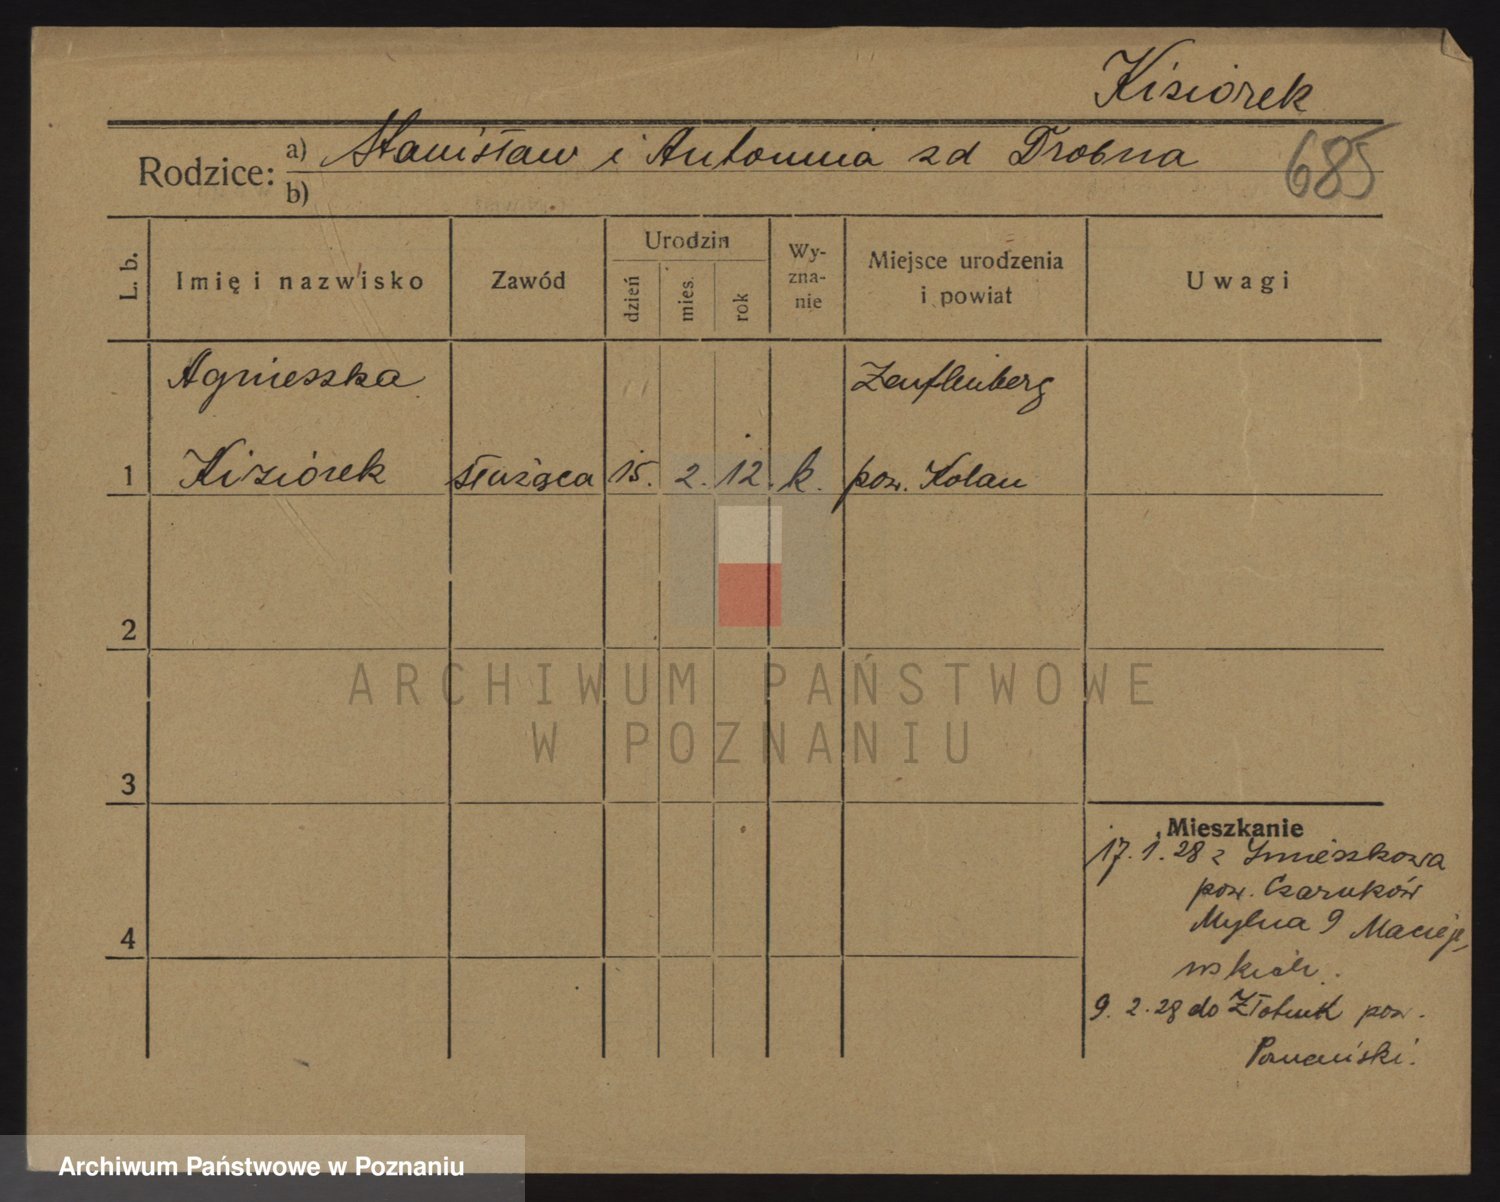 Kiziorek
Rodzice: a) Stanisław i Antonina zd Drobna
b)
685
L. b.
Imię i nazwisko
Zawód
Urodzin
dzień
mies.
rok
Wy-
zna-
nie
Miejsce urodzenia
i powiat
Uwagi
Agnieszka
1 Kiziorek służąca 15. 2. 12. k. pow. Kolau
2
3
4
Mieszkanie
17. 1. 28 z
pow. Czarnków
Mylna 9 Macieje
wskich.
9. 2. 28 do pow.
Poznański.
ARCHIWUM PAŃSTWOWE
W POZNANIU
Archiwum Państwowe w Poznaniu